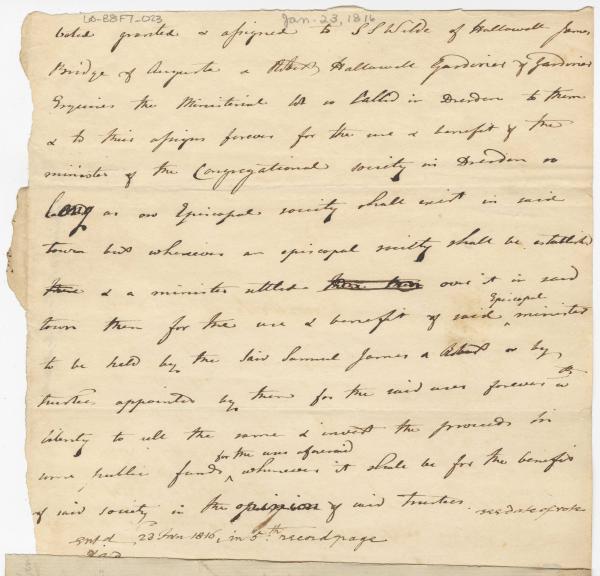 LD-B8F7-023
Jan. 23, 1816
Voted granted & assigned to S S Wilde of Hallowell James
Bridge of Augusta & Robert Hallowell Gardiner of Gardiner
Esquires the Ministerial lot so Called in Dresden to them
& to their assigns forever for the use & benefit of the
minister of the Congregational society in Dresden so
long as no Episcopal society shall exist in said
town but whenever an episcopal society shall be established
there & a minister settled over it in said
town then for the use & benefit of said Episcopal minister
to be held by the said Samuel James & Robert or by
trustees appointed by them for the said uses forever with
liberty to sell the same & invest the proceeds in
some public funds for the uses aforesaid whenever it shall be for the benefit
of said society in the opinion of said trustees. see date of vote
Ent'd 23 Jan 1816, in 5th record page